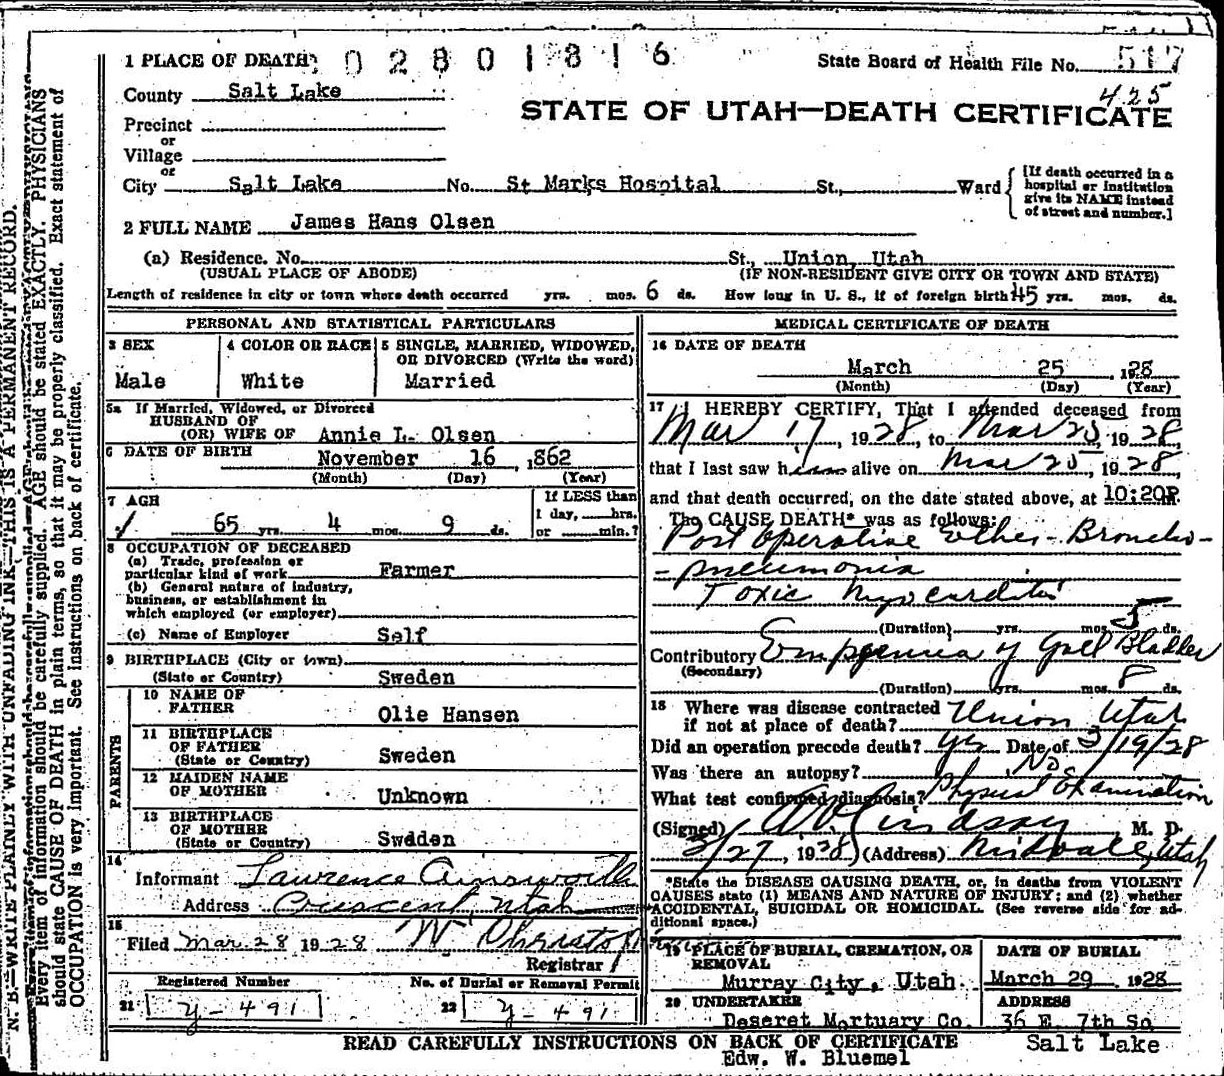 1 PLACE OF DEATH 0 2 8 0 1 8 1 6
State Board of Health File No. 517
425
County Salt Lake
STATE OF UTAH—DEATH CERTIFICATE
Precinct
or
Village
or
City Salt Lake No. St Marks Hospital St., Ward
[If death occurred in a hospital or institution give its NAME instead of street and number.]
2 FULL NAME James Hans Olsen
(a) Residence. No. St., Union, Utah
(USUAL PLACE OF ABODE) (IF NON-RESIDENT GIVE CITY OR TOWN AND STATE)
Length of residence in city or town where death occurred yrs. mos. 6 ds. How long in U. S., if of foreign birth 45 yrs. mos. ds.
PERSONAL AND STATISTICAL PARTICULARS
3 SEX
Male
4 COLOR OR RACE
White
5 SINGLE, MARRIED, WIDOWED, OR DIVORCED (Write the word)
Married
5a If Married, Widowed, or Divorced
HUSBAND OF
(OR) WIFE OF Annie L. Olsen
6 DATE OF BIRTH November 16 1862
(Month) (Day) (Year)
7 AGE
65 yrs. 4 mos. 9 ds.
If LESS than
1 day, hrs.
or min.?
8 OCCUPATION OF DECEASED
(a) Trade, profession or
particular kind of work Farmer
(b) General nature of industry,
business, or establishment in
which employed (or employer)
(c) Name of Employer Self
9 BIRTHPLACE (City or town)
(State or Country) Sweden
PARENTS
10 NAME OF
FATHER Olie Hansen
11 BIRTHPLACE
OF FATHER
(State or Country) Sweden
12 MAIDEN NAME
OF MOTHER Unknown
13 BIRTHPLACE
OF MOTHER
(State or Country) Sweden
14
Informant Lawrence Ainsworth
Address Crescent, Utah
15
Filed Mar 28 1928 W
Registrar
Registered Number No. of Burial or Removal Permit
21 y-491 22 y-491
MEDICAL CERTIFICATE OF DEATH
16 DATE OF DEATH
March 25, 1928
(Month) (Day) (Year)
17 I HEREBY CERTIFY, That I attended deceased from
Mar 17, 1928, to Mar 25, 1928,
that I last saw him alive on Mar 25, 1928,
and that death occurred, on the date stated above, at 10:20P.
The CAUSE DEATH* was as follows:
Post Operative Ether-Broncho-
-pneumonia
Toxic Myocarditis
(Duration) yrs. mos. 5 ds.
Contributory Empyemia of Gall Bladder
(Secondary)
(Duration) yrs. mos. 8 ds.
18 Where was disease contracted
if not at place of death? Union Utah
Did an operation precede death? yes Date of 3/19/28
Was there an autopsy? No
What test confirmed diagnosis? Physical Examination
(Signed) Lindsay M. D.
3/27, 1928 (Address) Midvale, Utah
*State the DISEASE CAUSING DEATH, or, in deaths from VIOLENT
CAUSES state (1) MEANS AND NATURE OF INJURY; and (2) whether
ACCIDENTAL, SUICIDAL OR HOMICIDAL. (See reverse side for ad-
ditional space.)
19 PLACE OF BURIAL, CREMATION, OR
REMOVAL
Murray City, Utah
DATE OF BURIAL
March 29 1928
20 UNDERTAKER
Deseret Mortuary Co.
ADDRESS
36 E. 7th So
READ CAREFULLY INSTRUCTIONS ON BACK OF CERTIFICATE
Salt Lake
Edw. W. Bluemel
N. B.—WRITE PLAINLY WITH UNFADING INK—THIS IS A PERMANENT RECORD.
Every item of information should be carefully supplied. AGE should be stated EXACTLY. PHYSICIANS
should state CAUSE OF DEATH in plain terms, so that it may be properly classified. Exact statement of
OCCUPATION is very important. See instructions on back of certificate.